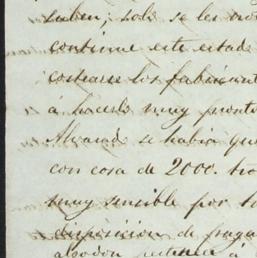 saben; solo se les
continue este estado
costearse los fabricant
á hacerlo muy pronto
Alvarado se habia que
con cosa de 2000.
muy sensible por
disposicion de
algodon